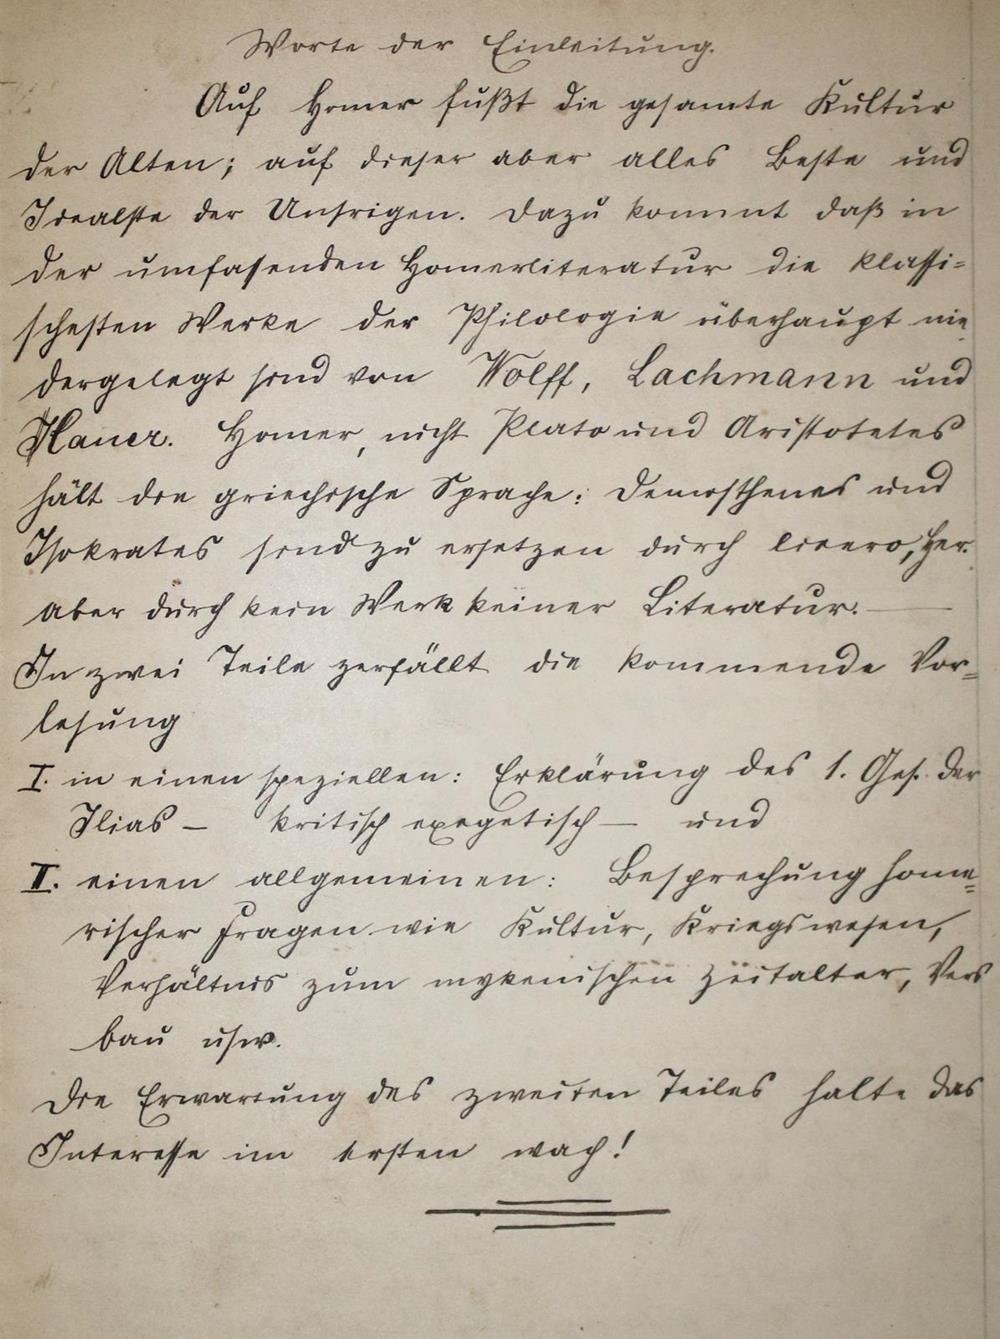 Worte der Einleitung.
Auf Homer fußt die gesamte Kultur
der Alten; auf dieser aber alles Beste und
Idealste der Unsrigen. Dazu kommt daß in
der umfasenden Homerliteratur die klassi-
schesten Werke der Philologie überhaupt nie
dergelegt sind von Wolff, Lachmann und
Homer, nicht Plato und Aristoteles
hält die griechische Sprache: Demosthenes und
Isokrates sind zu ersetzen durch Cicero,
aber durch kein Werk keiner Literatur. —
In zwei Teile zerfällt die kommende Vor-
lesung
I. in einen speziellen: Erklärung des 1. Ges. der
Ilias – kritisch exegetisch – und
II. einen allgemeinen: Besprechung home-
rischer Fragen wie Kultur, Kriegswesen,
Verhältnis zum mykenischen Zeitalter, Vers
bau usw.
Die Erwartung des zweiten Teiles halte das
Interesse im ersten wach!